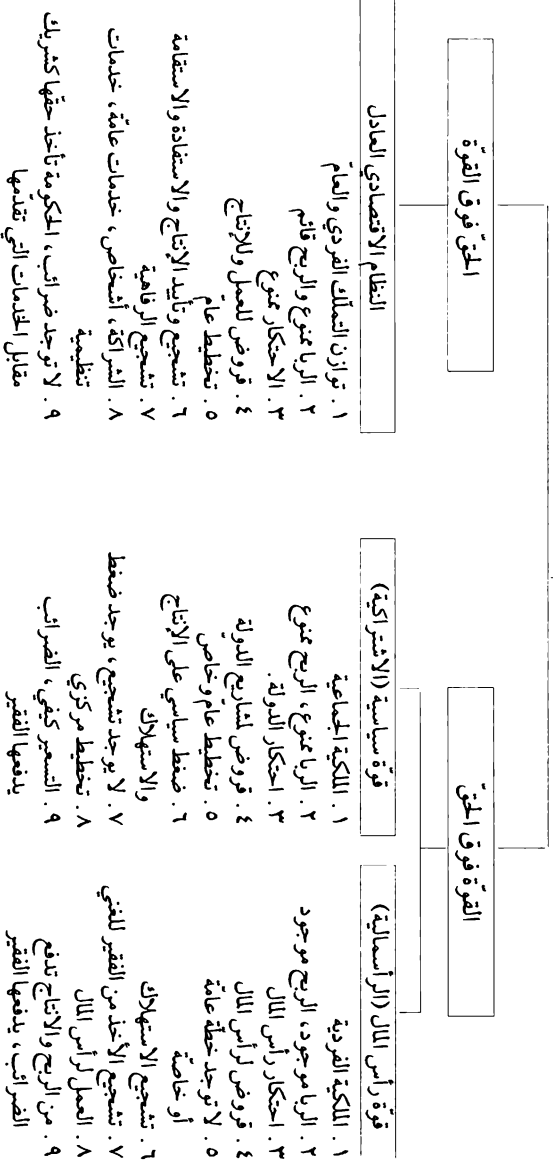 الحقّ فوق القوّة
النظام الاقتصادي العادل
١ . توازن التملّك الفردي والعامّ
٢ . الربا ممنوع والربح قائم
٣ . الاحتكار ممنوع
٤ . قروض للعمل وللإنتاج
٥ . تخطيط عامّ
٦ . تشجيع وتأييد الإنتاج والاستفادة والاستقامة
٧ . تشجيع الرفاهية
٨ . الشراكة، أشخاص، خدمات عامّة، خدمات
تنظيمية
٩ . لا توجد ضرائب، الحكومة تأخذ حقّها كشريك
مقابل الخدمات التي تقدّمها
القوّة فوق الحقّ
قوّة سياسية (الاشتراكية)
١ . الملكية الجماعية
٢ . الربا ممنوع، الربح ممنوع
٣ . احتكار الدولة.
٤ . قروض لمشاريع الدولة
٥ . تخطيط عامّ وخاص
٦ . ضغط سياسي على الإنتاج
والاستهلاك
٧ . لا يوجد تشجيع، يوجد ضغط
٨ . تخطيط مركزي
٩ . التسعير كيفي، الضرائب
يدفعها الفقير
قوّة رأس المال (الرأسمالية)
١ . الملكية الفردية
٢ . الربا موجود، الربح موجود
٣ . احتكار رأس المال
٤ . قروض لرأس المال
٥ . لا توجد خطّة عامّة
أو خاصّة
٦ . تشجيع الاستهلاك
٧ . تشجيع الأخذ من الفقير للغني
٨ . العمل لرأس المال
٩ . من الربح والانتاج تدفع
الضرائب، يدفعها الفقير